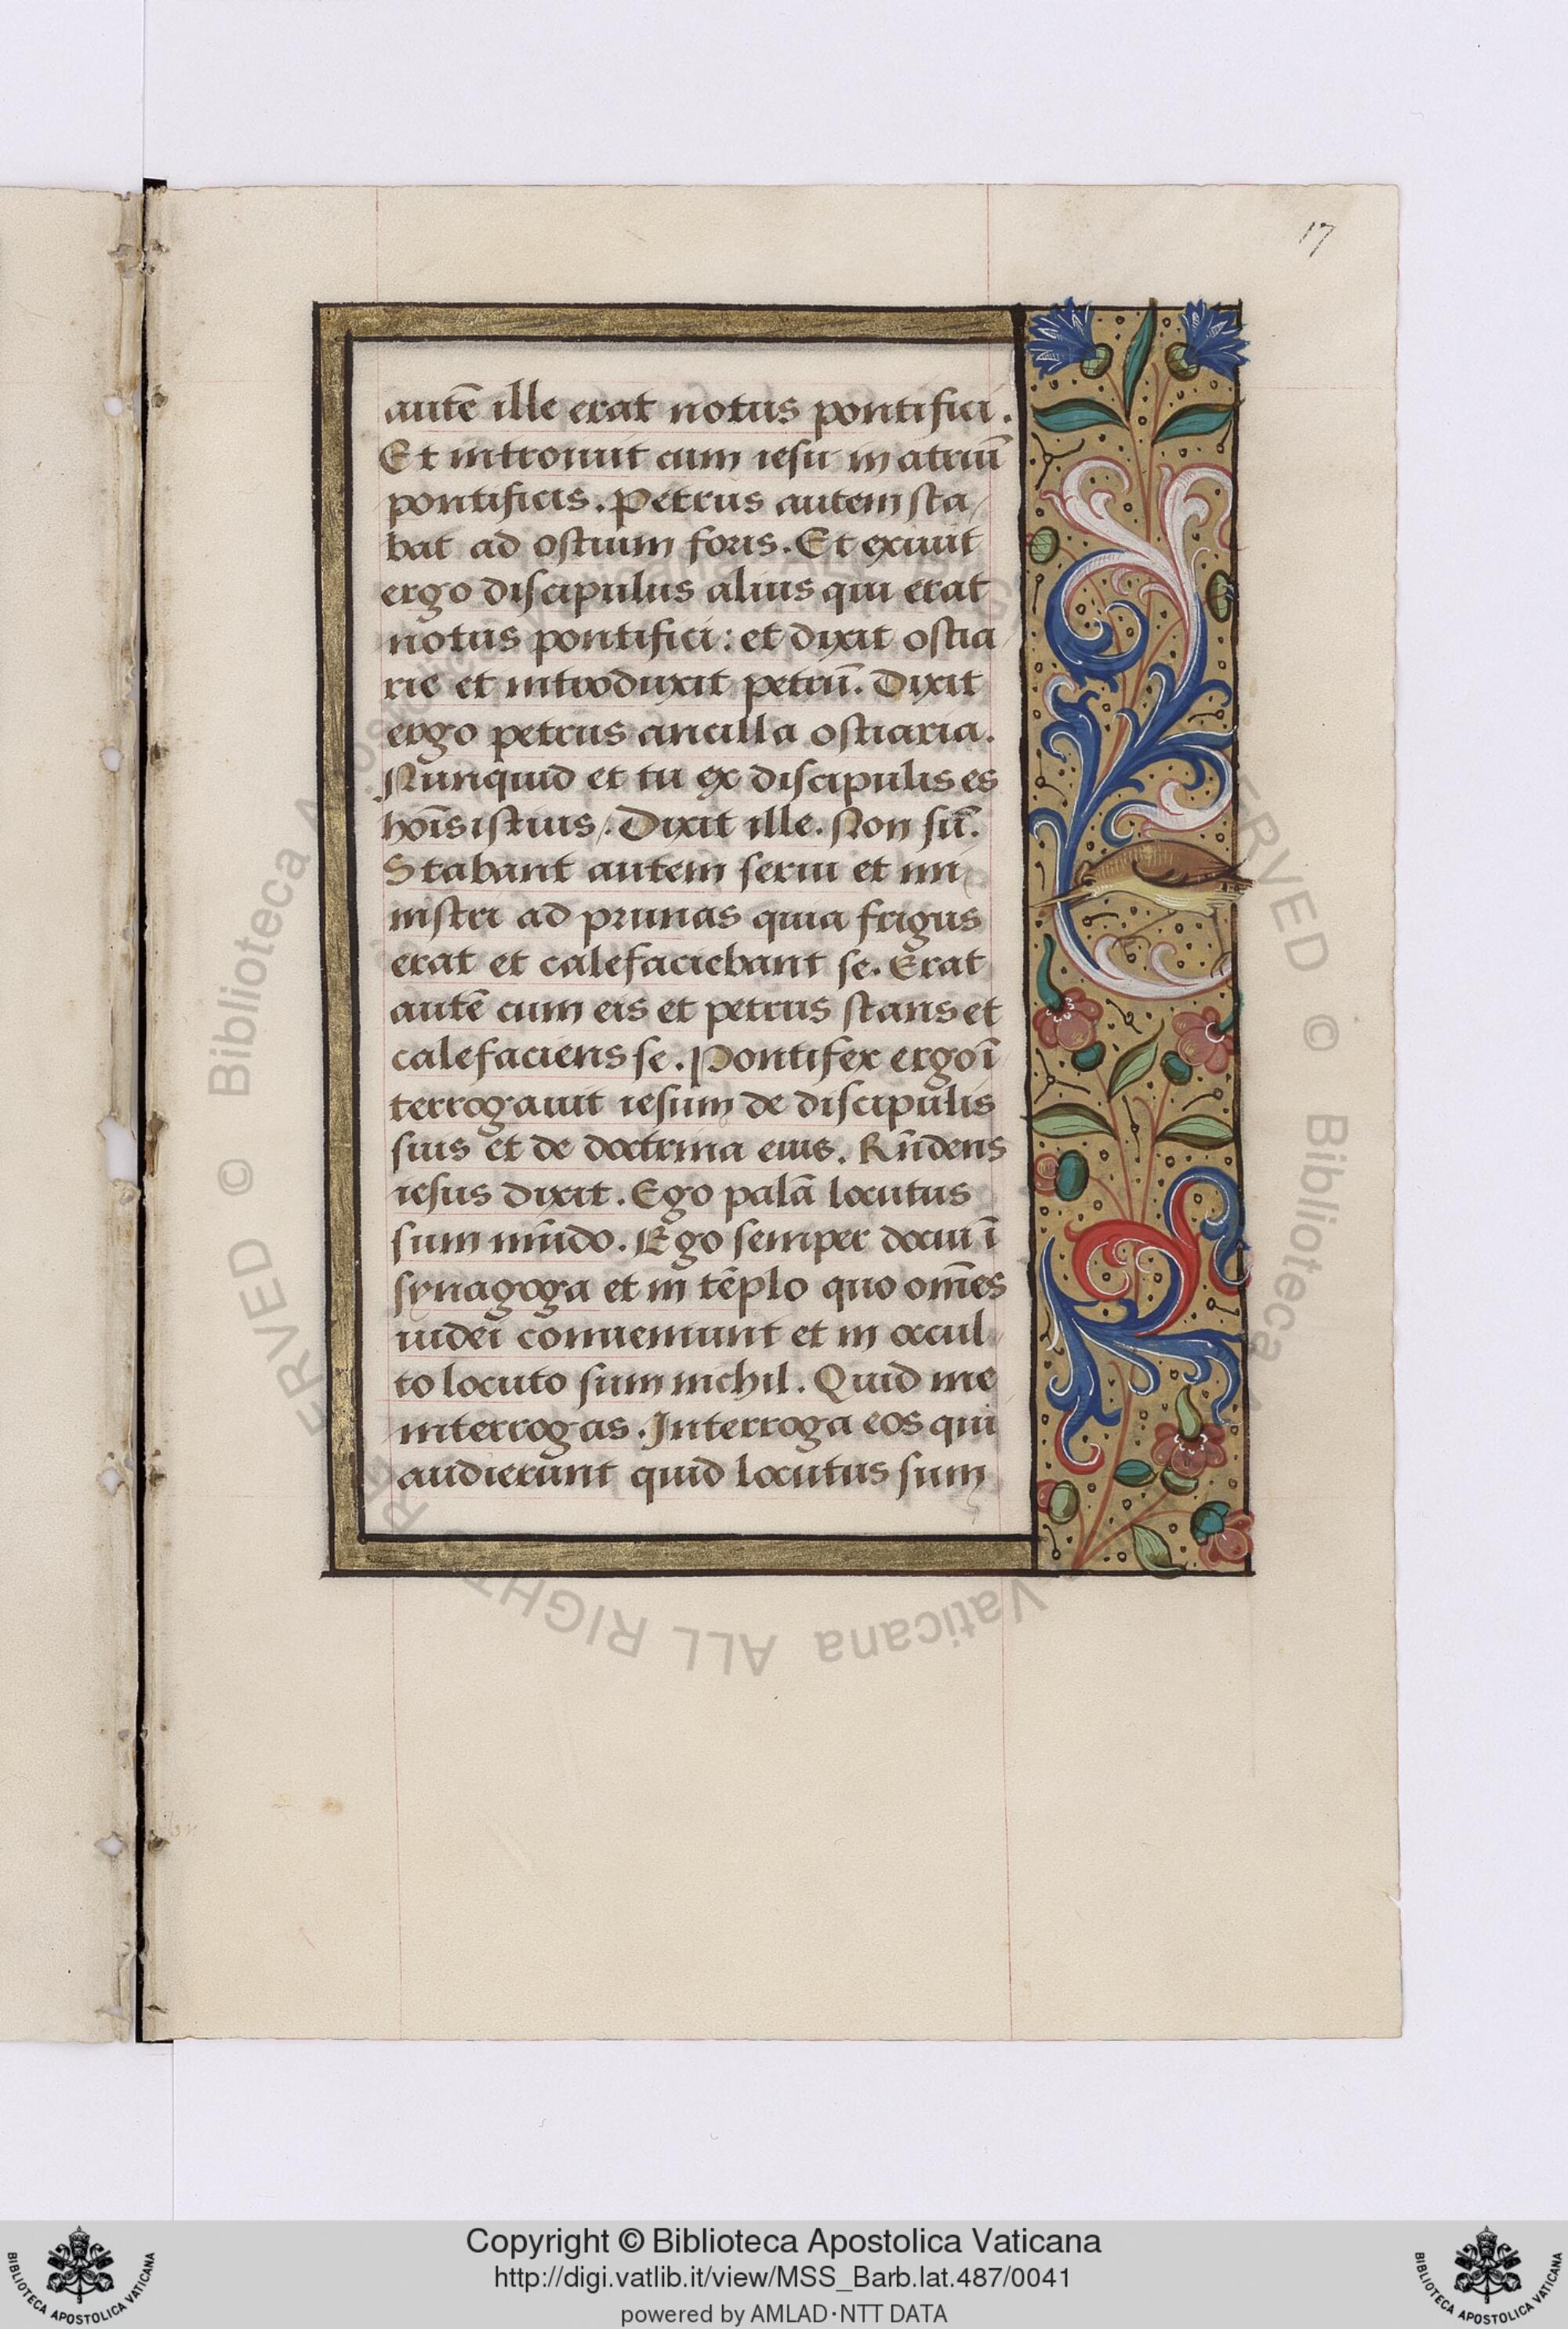 17
autē ille erat notus pontifici.
Et introiuit cum iesu in atriū
pontificis. Petrus autem sta/
bat ad ostium foris. Et exiuit
ergo discipulus alius qui erat
notus pontifici: et dixit ostia/
rie et introduxit petrū. Dixit
ergo petrus ancilla ostiaria.
Nunquid et tu ex discipulis es
hoīs istius/. Dixit ille. Non sū.
Stabant autem serui et mi/
nistri ad prunas quia frigus
erat et calefaciebant se. Erat
autē cum eis et petrus stans et
calefaciens se. Pontifex ergo ī/
terrogauit iesum de discipulis
suis et de doctrina eius. Rn̄dens
iesus dixit. Ego palā locutus
sum mūdo. Ego semper docui ī
synagoga et in tēplo quo om̄es
iudei conueniunt et in occul/
to locuto sum nichil. Quid me
interrogas. Interroga eos qui
audierunt quid locutus sum
© Biblioteca Apostolica Vaticana ALL RIGHTS RESERVED © Biblioteca
Copyright © Biblioteca Apostolica Vaticana
http://digi.vatlib.it/view/MSS_Barb.lat.487/0041
powered by AMLAD·NTT DATA
BIBLIOTECA APOSTOLICA VATICANA
BIBLIOTECA APOSTOLICA VATICANA